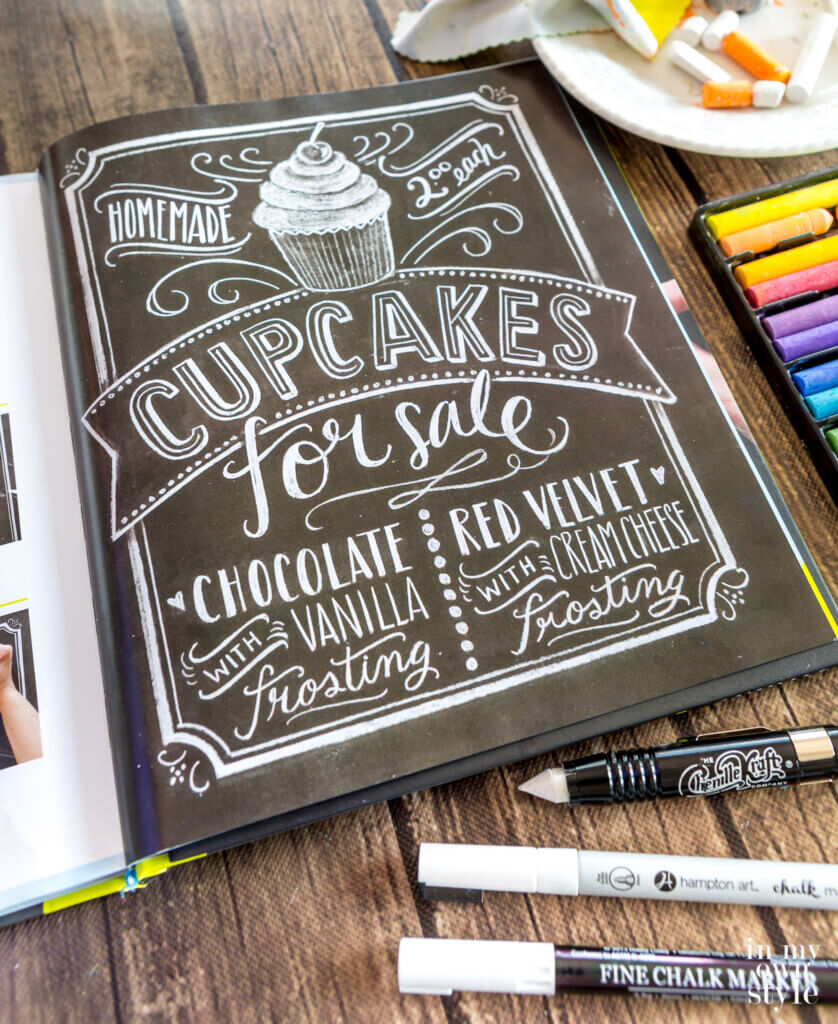 HOMEMADE
2.00 each
CUPCAKES
for sale
CHOCOLATE
WITH VANILLA
frosting
RED VELVET
WITH CREAM CHEESE
frosting
THE
Chenille Kraft ®
COMPANY
hampton art™ chalk ma
FINE CHALK MARKER
in my
own
style